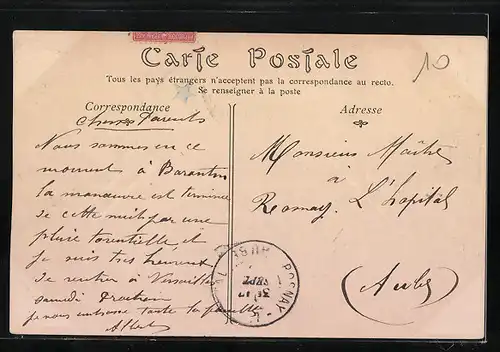 Carte Postale
Tous les pays étrangers n'acceptent pas la correspondance au recto.
Se renseigner à la poste
Correspondance
Chers Parents
Nous sommes en ce
moment à Barantin
la manœuvre est terminée
de cette nuit par une
pluie torentielle et
je suis tres heureux
de rentrer à Versailles
samedi Prochain
je vous embrasse toute la famille
Albert
Adresse
Monsieur Maitre
à
Rosnay L'hopital
(Aube)
ROSNAY
AUBE
10